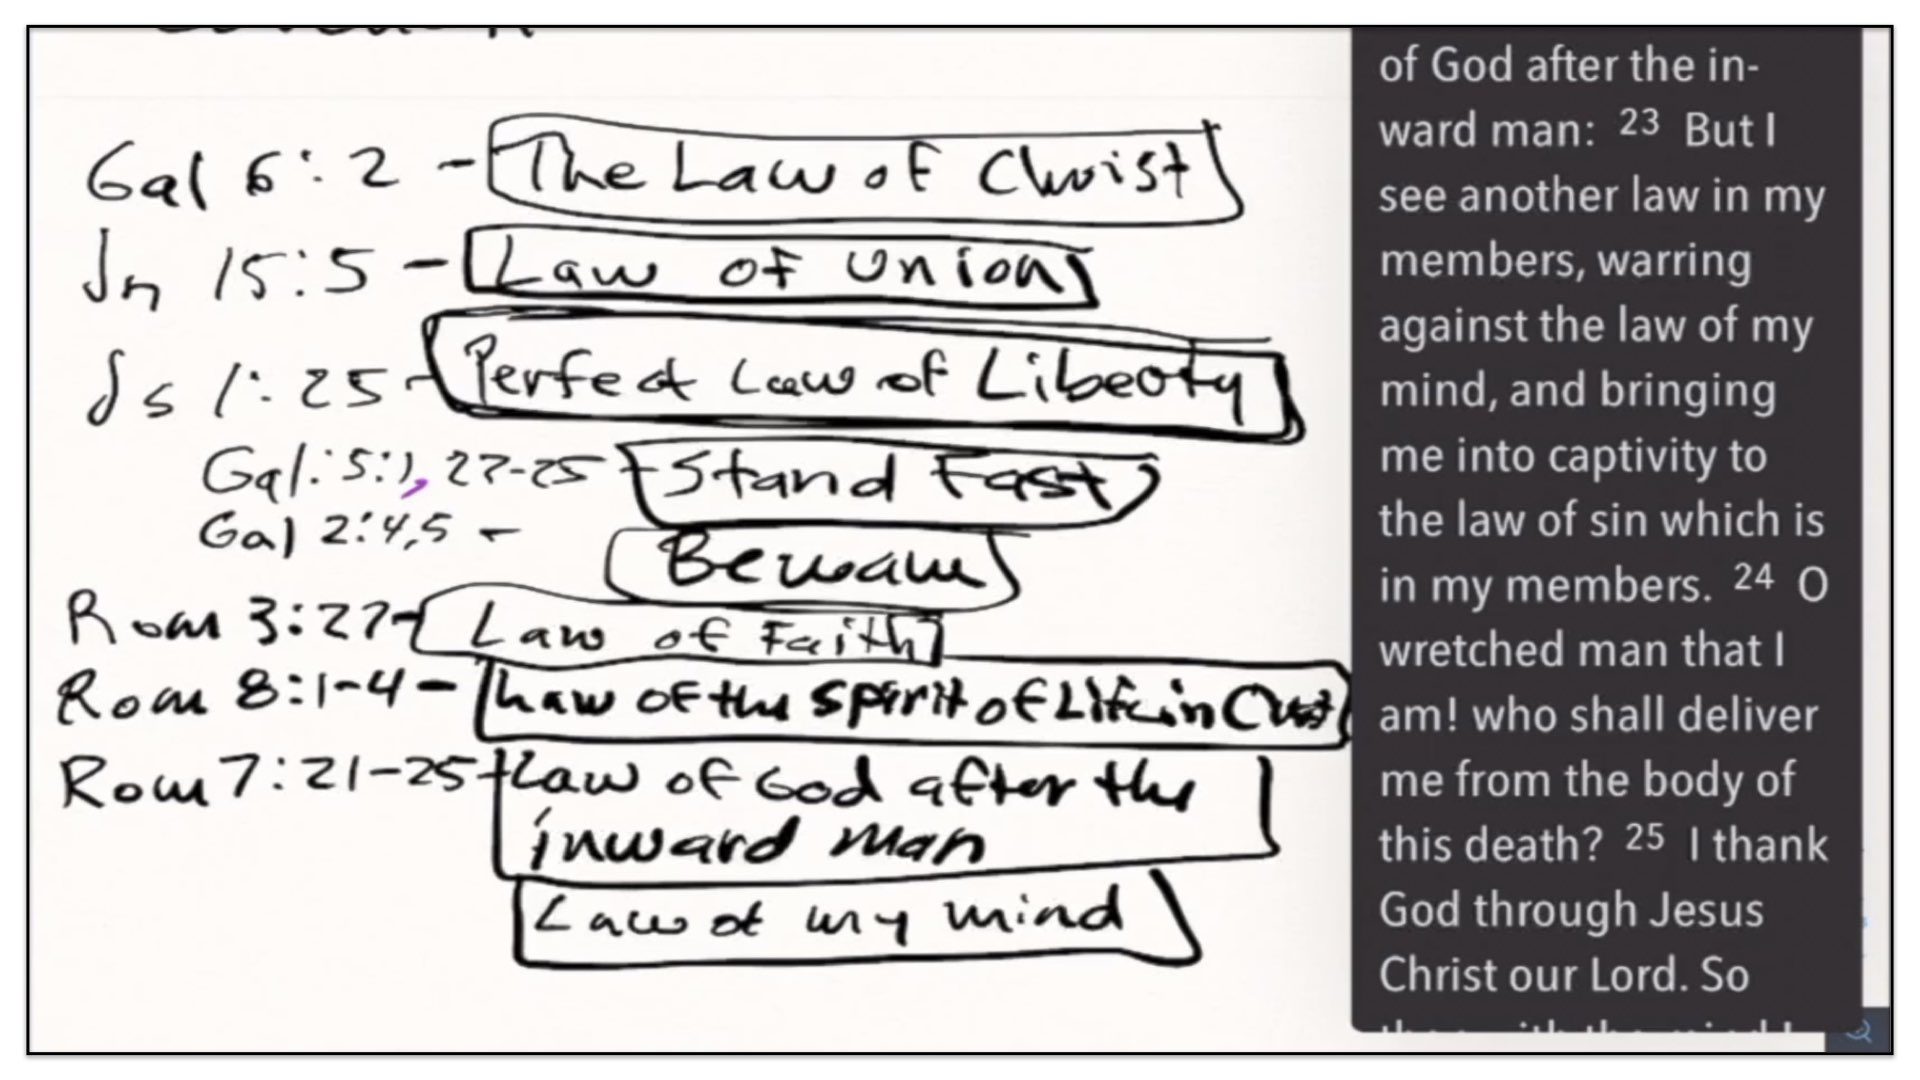 Gal 6:2 - The Law of Christ
Jn 15:5 - Law of Union
Js 1:25 - Perfect Law of Liberty
Gal. 5:1, 22-25 - Stand Fast
Gal 2:4,5 - Beware
Rom 3:27 - Law of Faith
Rom 8:1-4 - Law of the Spirit of Life in Christ
Rom 7:21-25 - Law of God after the
inward man
Law of my mind
of God after the in-
ward man: 23 But I
see another law in my
members, warring
against the law of my
mind, and bringing
me into captivity to
the law of sin which is
in my members. 24 O
wretched man that I
am! who shall deliver
me from the body of
this death? 25 I thank
God through Jesus
Christ our Lord. So